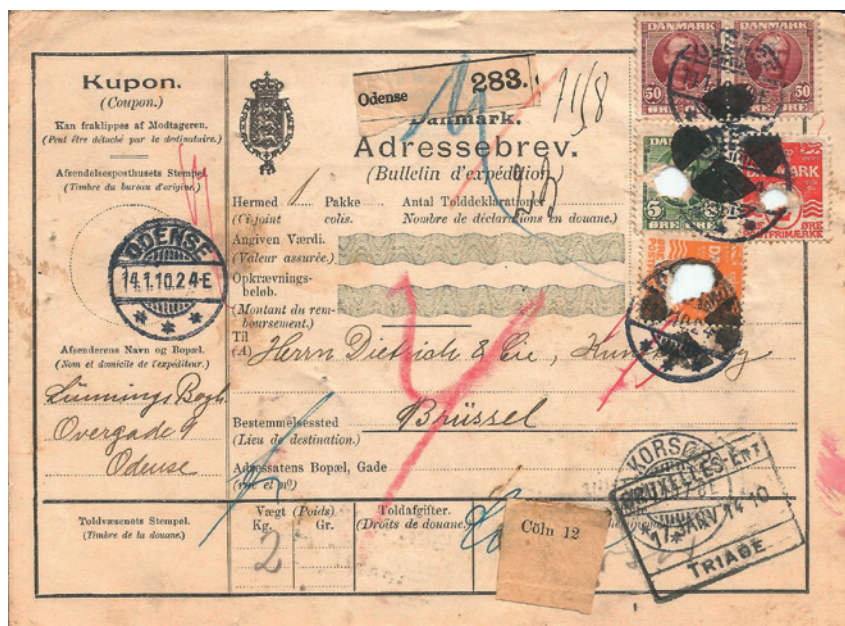 Kupon.
(Coupon.)
Kan fraklippes af Modtageren.
(Peut être détaché par le destinataire.)
Afsendelsesposthusets Stempel.
(Timbre du bureau d'origine.)
ODENSE
14.1.10.2 4-E
Afsenderens Navn og Bopæl.
(Nom et domicile de l'expéditeur.)
Overgade 9
Odense
Toldvæsenets Stempel.
(Timbre de la douane.)
Odense 283.
Danmark.
Adressebrev.
(Bulletin d'expédition)
11/8
Hermed 1 Pakke Antal Tolddeklarationer
(Ci-joint colis. Nombre de déclarations en douane.)
Angiven Værdi.
(Valeur assurée.)
Opkrævnings-
beløb.
(Montant du rem-
boursement.)
Til
(A) Herrn Dietrich & Cie,
Bestemmelsessted Brüssel
(Lieu de destination.)
Adressatens Bopæl, Gade
(rue et nº)
Vægt (Poids)
Kg. Gr.
2
Toldafgifter.
(Droits de douane.)
Cöln 12
DANMARK DANMARK
50 50
ØRE ØRE
5
ØRE ØRE
DANMARK
ØRE
POSTFRIMÆRKE
KORSØ
BRUXELLES-Enf
17 JANV 14 10
TRIAGE